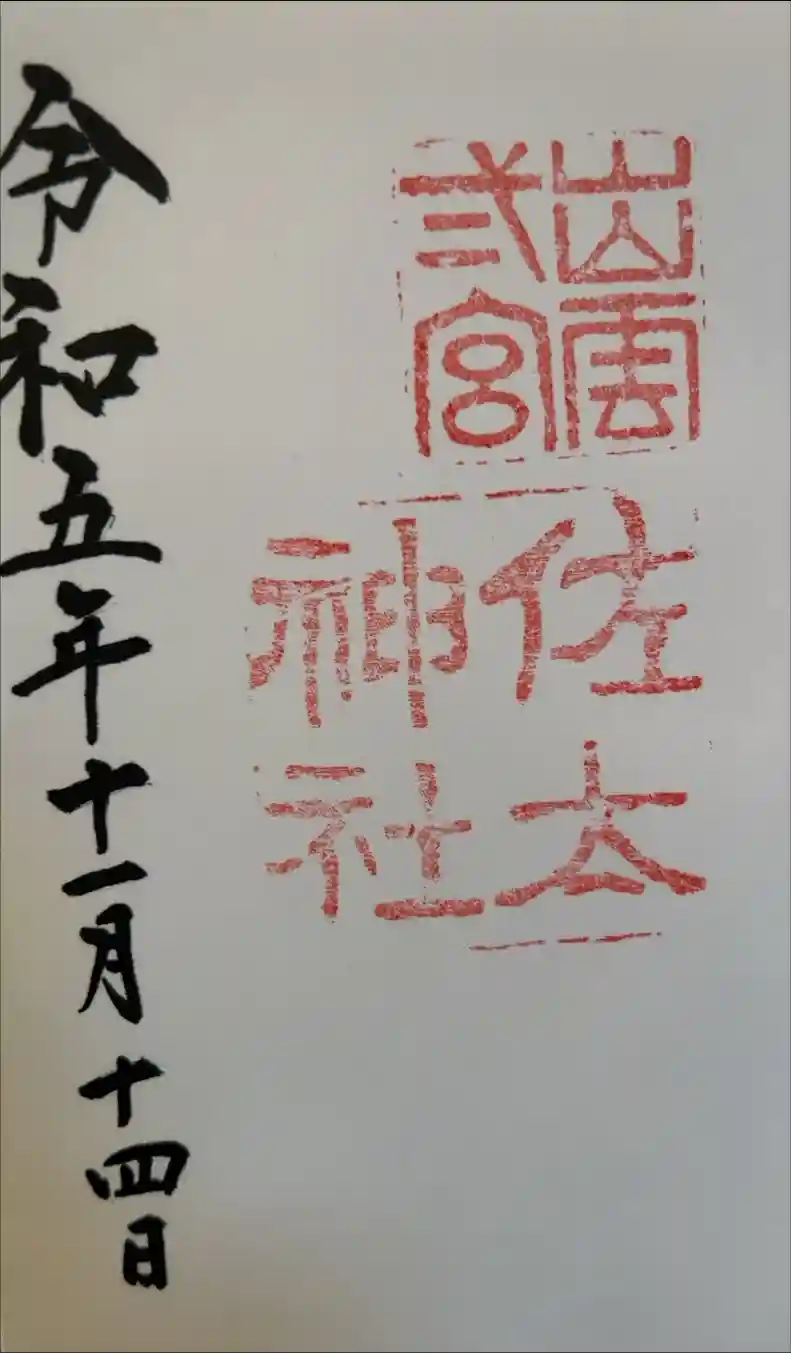 出雲
弍宮
佐太
神社
令和五年十一月十四日